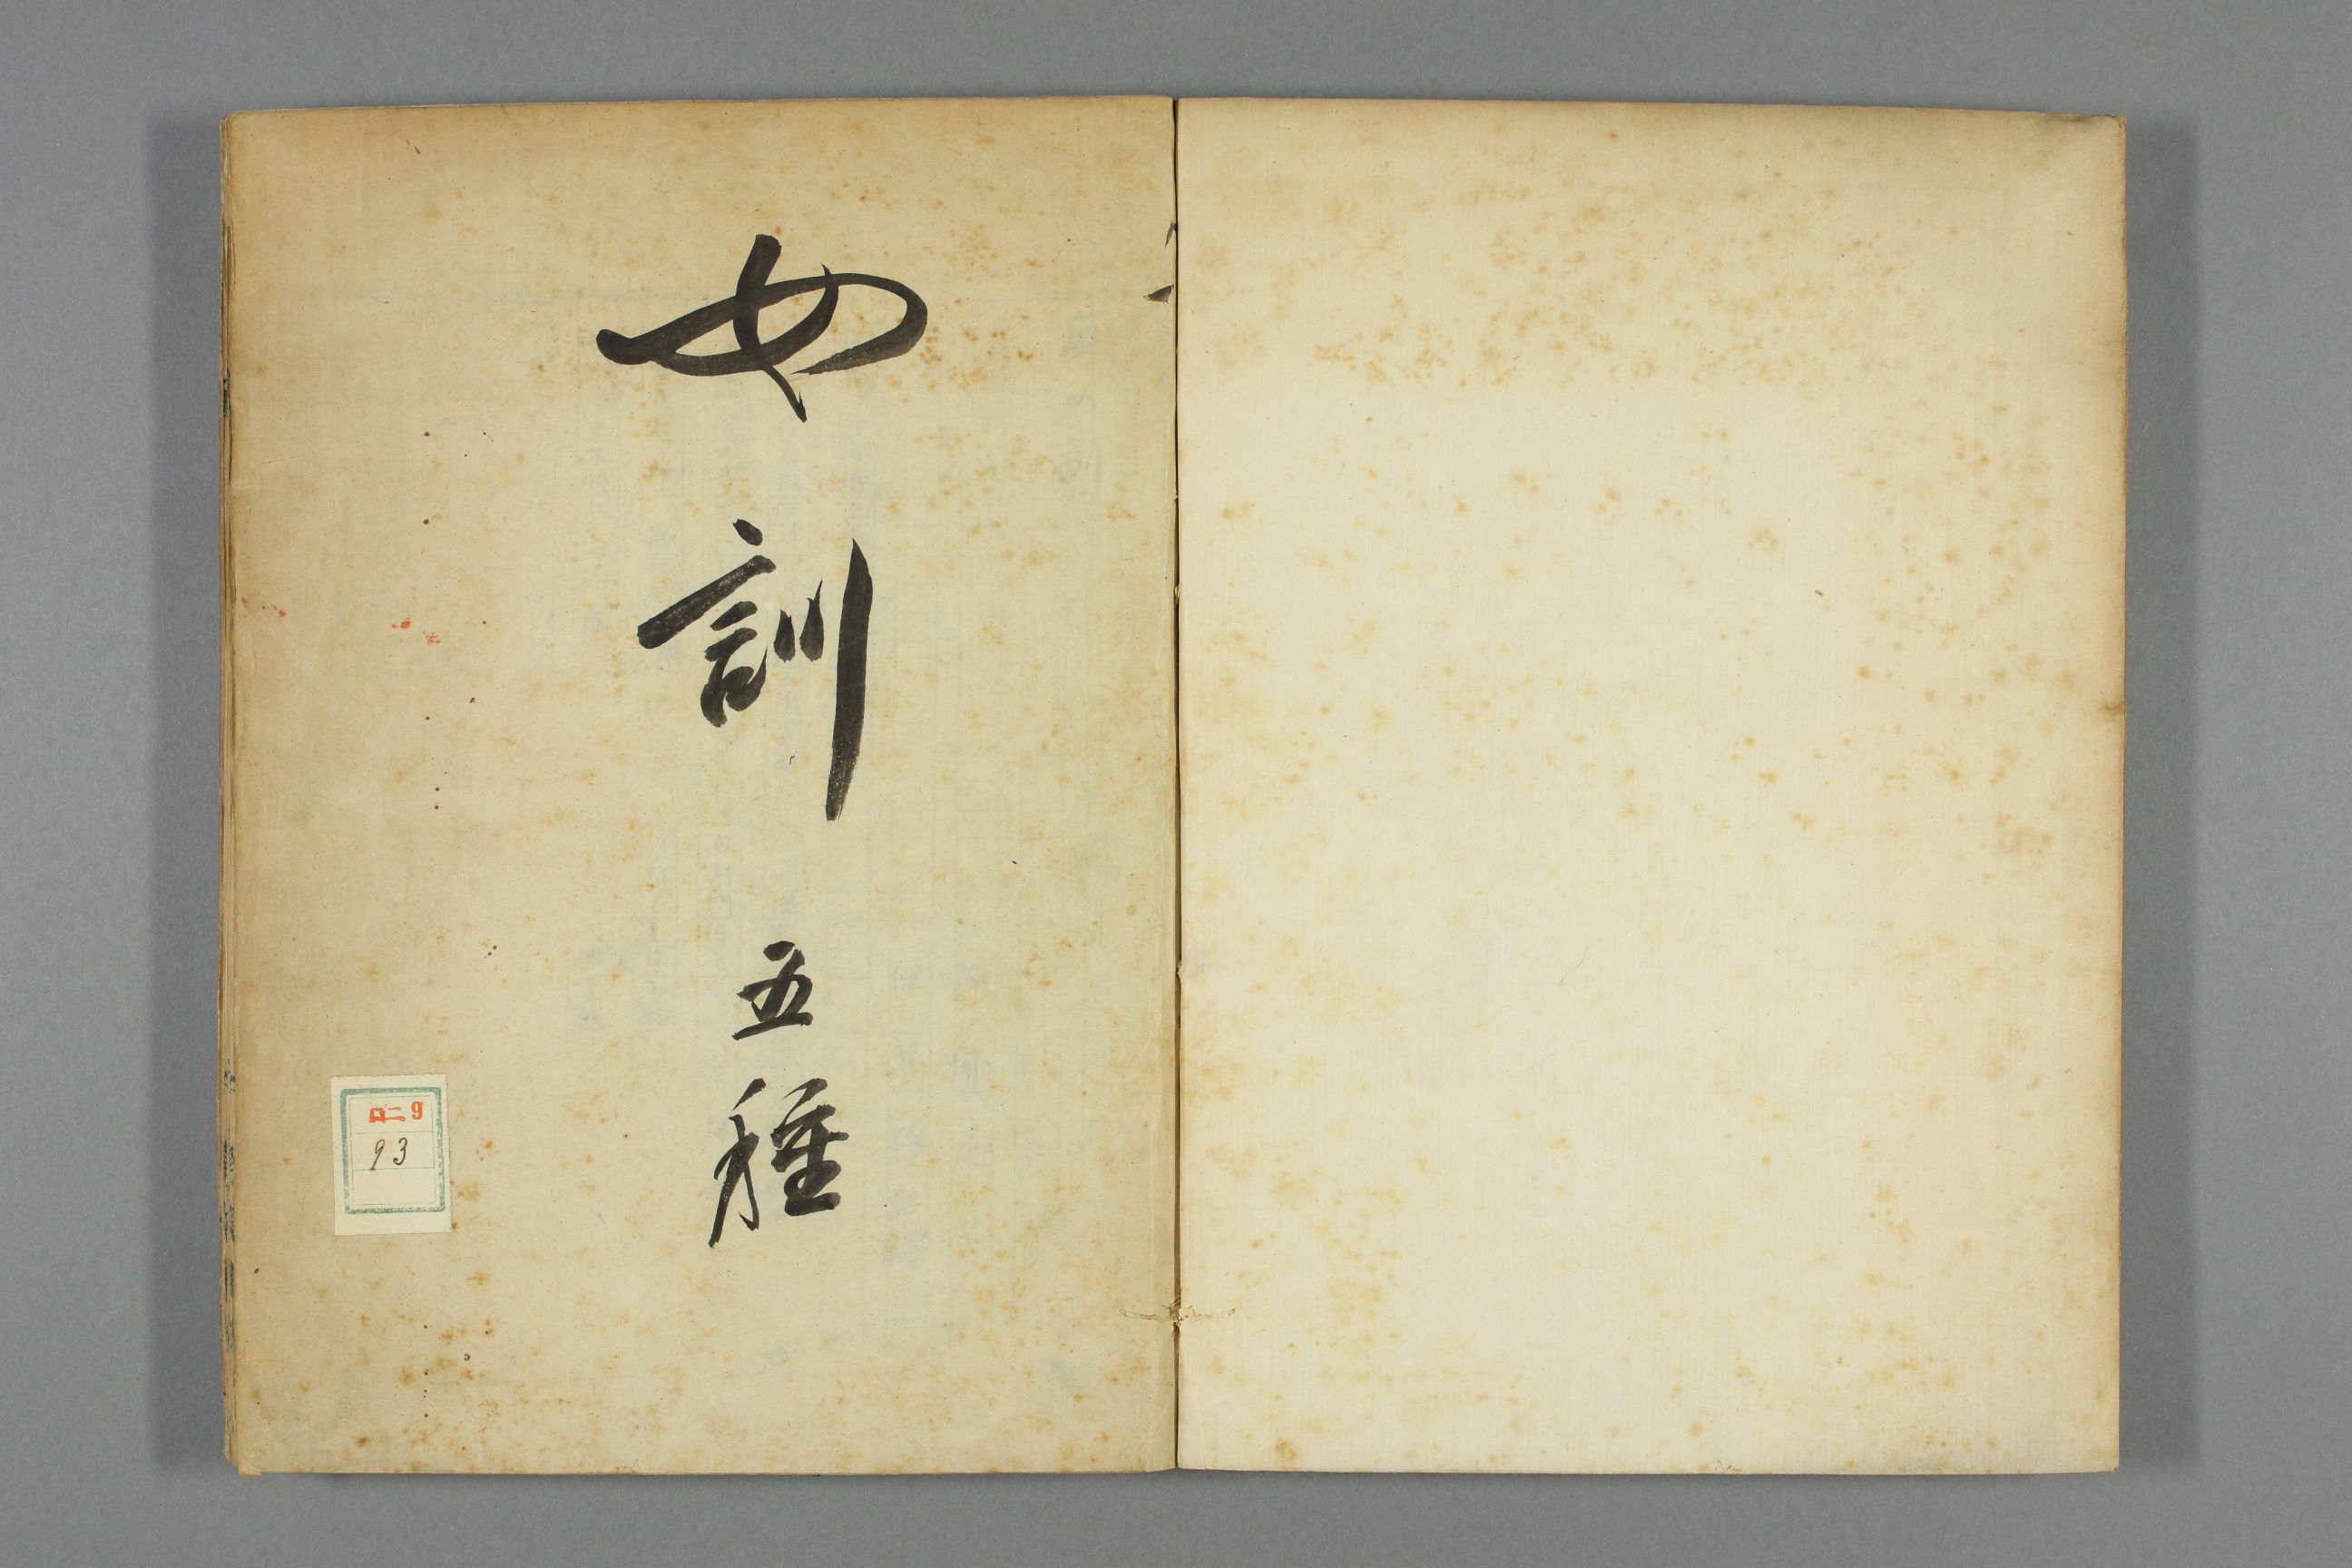 女訓 五種
ロ二9
93